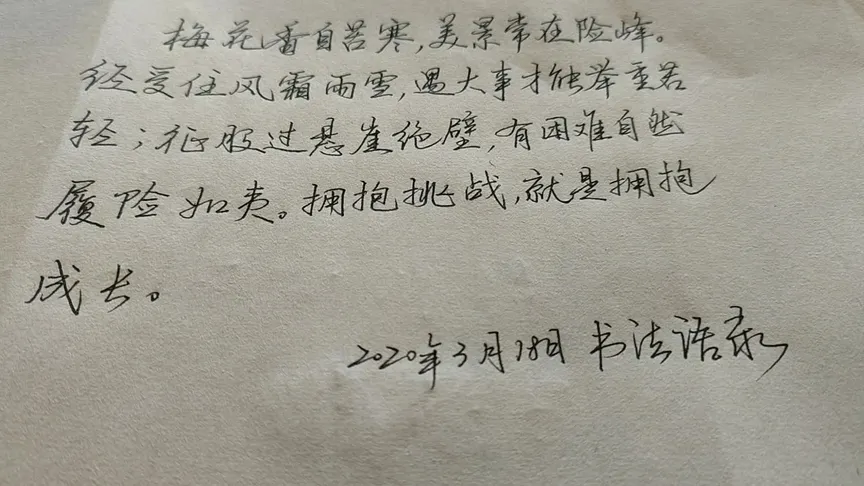 梅花香自苦寒,美景常在险峰。
经受住风霜雨雪,遇大事才能举重若
轻;征服过悬崖绝壁,有困难自然
履险如夷。拥抱挑战,就是拥抱
成长。
2020年3月18日 书法语录